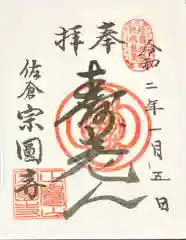 奉拝
令和二年一月五日
寿老人
佐倉宗圓寺